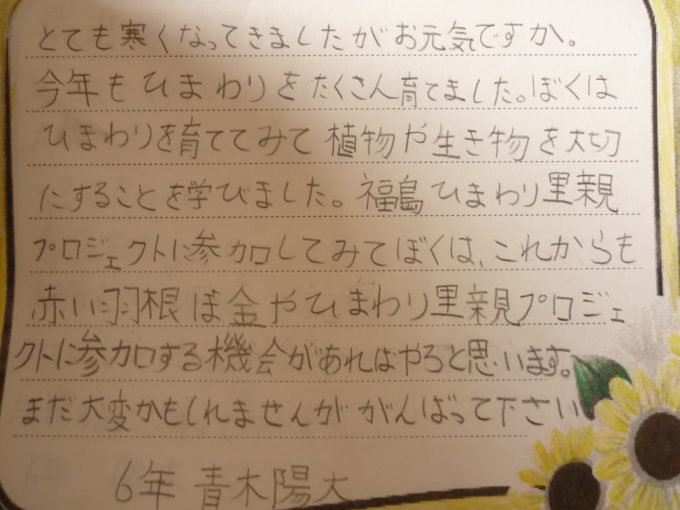 とても寒くなってきましたがお元気ですか。
今年もひまわりをたくさん育てました。ぼくは
ひまわりを育ててみて植物や生き物を大切
にすることを学びました。福島ひまわり里親
プロジェクトに参加してみてぼくは、これからも
赤い羽根ぼ金やひまわり里親プロジェ
クトに参加する機会があればやろと思います。
まだ大変かもしれませんががんばって下さい
6年 青木陽大